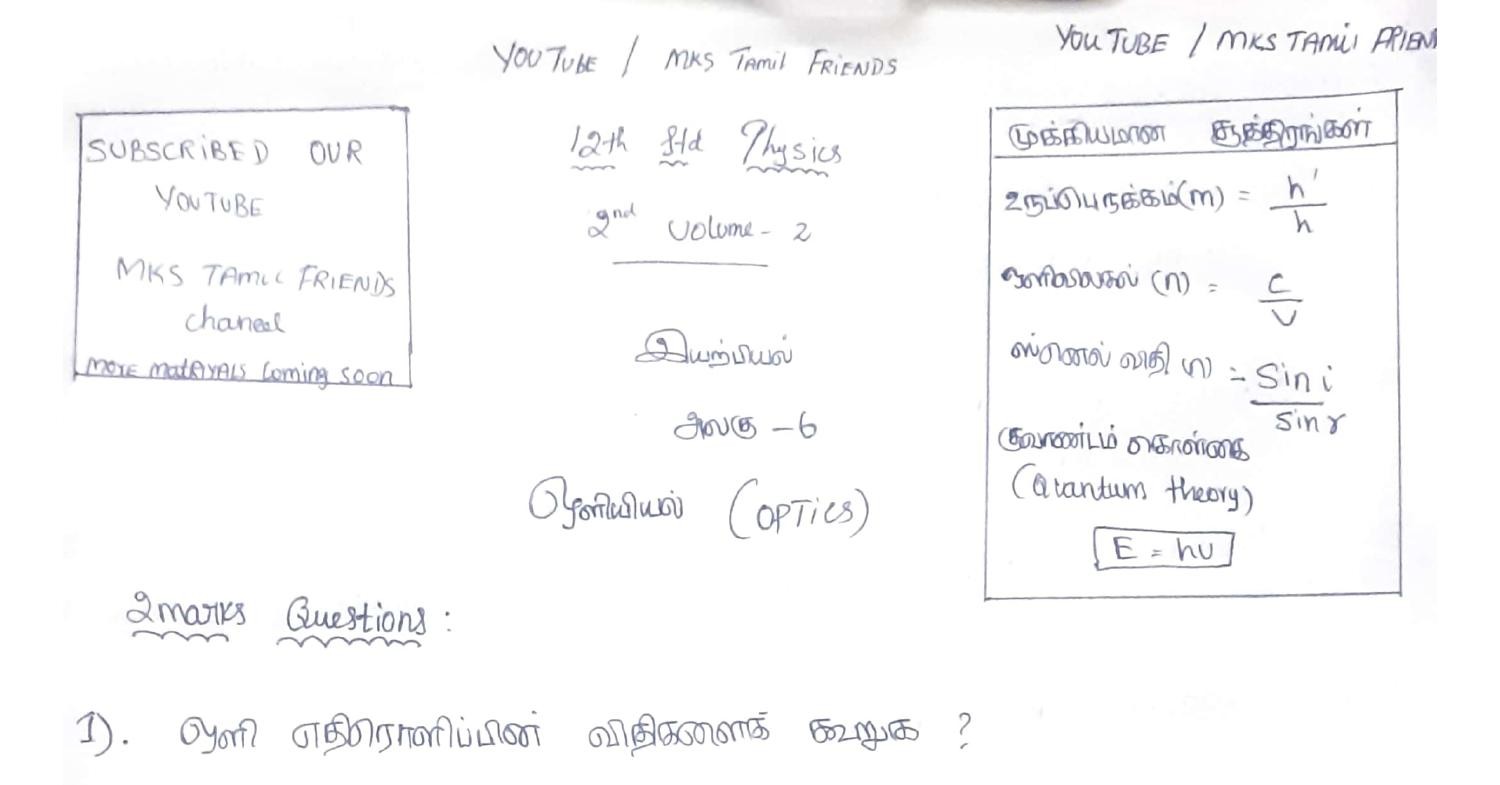 YOUTUBE / MKS TAMil FRIEN
YOUTUBE / MKS Tamil FRIENDS
SUBSCRIBED OUR
YOUTUBE
MKS TAMIL FRIENDS
chaneel
MORE MATERIYALS Coming soon
12th Std Physics
2nd Volume - 2
இயற்பியல்
அலகு - 6
ஒளியியல் (OPTICS)
முக்கியமான சூத்திரங்கள்
உருப்பெருக்கம் (m) = h'/h
ஒளிவிலகல் (n) = c/v
ஸ்னெல் விதி (n) = Sin i / Sin r
குவாண்டம் கொள்கை
(Quantum theory)
E = hυ
2marks Questions :
1). ஒளி எதிரொளிப்பின் விதிகளைக் கூறுக ?